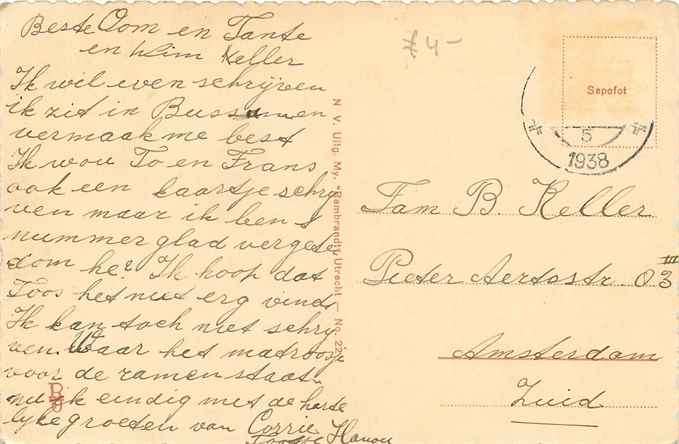 Beste Oom en Tante
en Wim Keller
Ik wil even schrijven
ik zit in Bussum en
vermaak me best
Ik wou To en Frans
ook een kaartje schrij
ven maar ik ben 't
nummer glad vergete
dom he? Ik hoop dat
Toos het niet erg vindt
Ik kan toch niet schrij
ven. Waar het matroosje
voor de ramen staat.
nu ik eindig met de harte
lyke groeten van Corrie
£ 4-
Sepofot
5
1938
Fam B. Keller
Pieter Aertsstr. 03 III
Amsterdam
Zuid
N. V. Uitg. My. "Rembrandt" Utrecht — No. 22